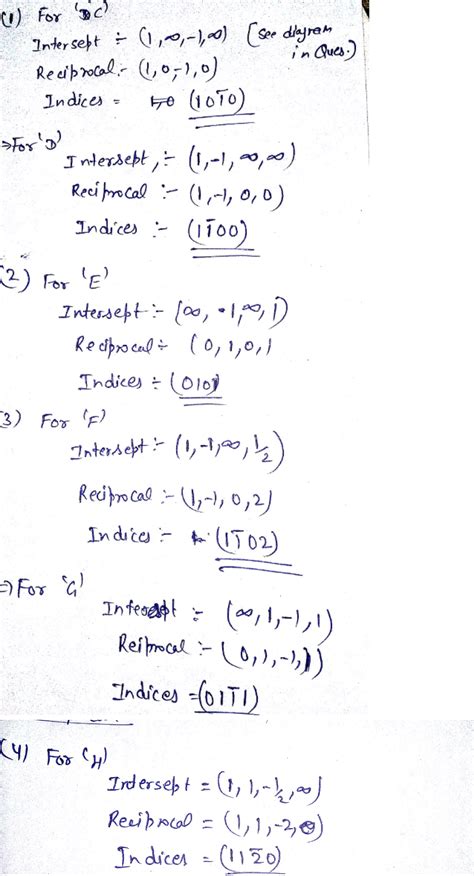 (1) For 'C'
Intersept ÷ (1,∞,-1,∞) (See diagram
in Ques.)
Reciprocal:- (1,0,-1,0)
Indices = (101̄0)
⇒For 'D'
Intersept,:- (1,-1,∞,∞)
Reciprocal :- (1,-1,0,0)
Indices :- (11̄00)
(2) For 'E'
Intersept:- (∞, 1,∞,1)
Reciprocal ÷ (0,1,0,1
Indices ÷ (0101)
(3) For 'F'
Intersept:- (1,-1,∞,1/2)
Reciprocal :- (1,-1,0,2)
Indices :- (11̄02)
⇒For 'G'
Intersept ÷ (∞,1,-1,1)
Reiprocal :- (0,1,-1,1)
Indices =(011̄1)
(4) For 'H'
Intersept = (1,1,-1/2,∞)
Reciprocal = (1,1,-2,0)
Indices = (112̄0)